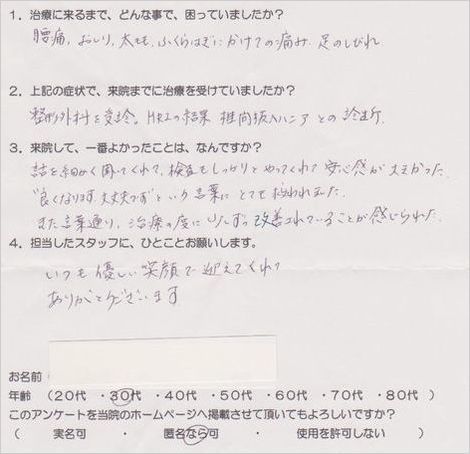 1. 治療に来るまで、どんな事で、困っていましたか？
腰痛、おしり、太もも、ふくらはぎにかけての痛み 足のしびれ
2. 上記の症状で、来院までに治療を受けていましたか？
整形外科を受診。MRIの結果 椎間板ヘルニアとの診断
3. 来院して、一番よかったことは、なんですか？
話を細かく聞いてくれて、検査もしっかりとやってくれて安心感が大きかった。
"良くなります。大丈夫です"という言葉にとても救われました。
また言葉通り、治療の度に少しずつ改善されていることが感じられた。
4. 担当したスタッフに、ひとことお願いします。
いつも優しい笑顔で迎えてくれて
ありがとうございます
お名前
年齢 （20代 ・30代 ・40代 ・50代 ・60代 ・70代 ・80代 ）
このアンケートを当院のホームページへ掲載させて頂いてもよろしいですか？
（ 実名可 ・ 匿名なら可 ・ 使用を許可しない ）